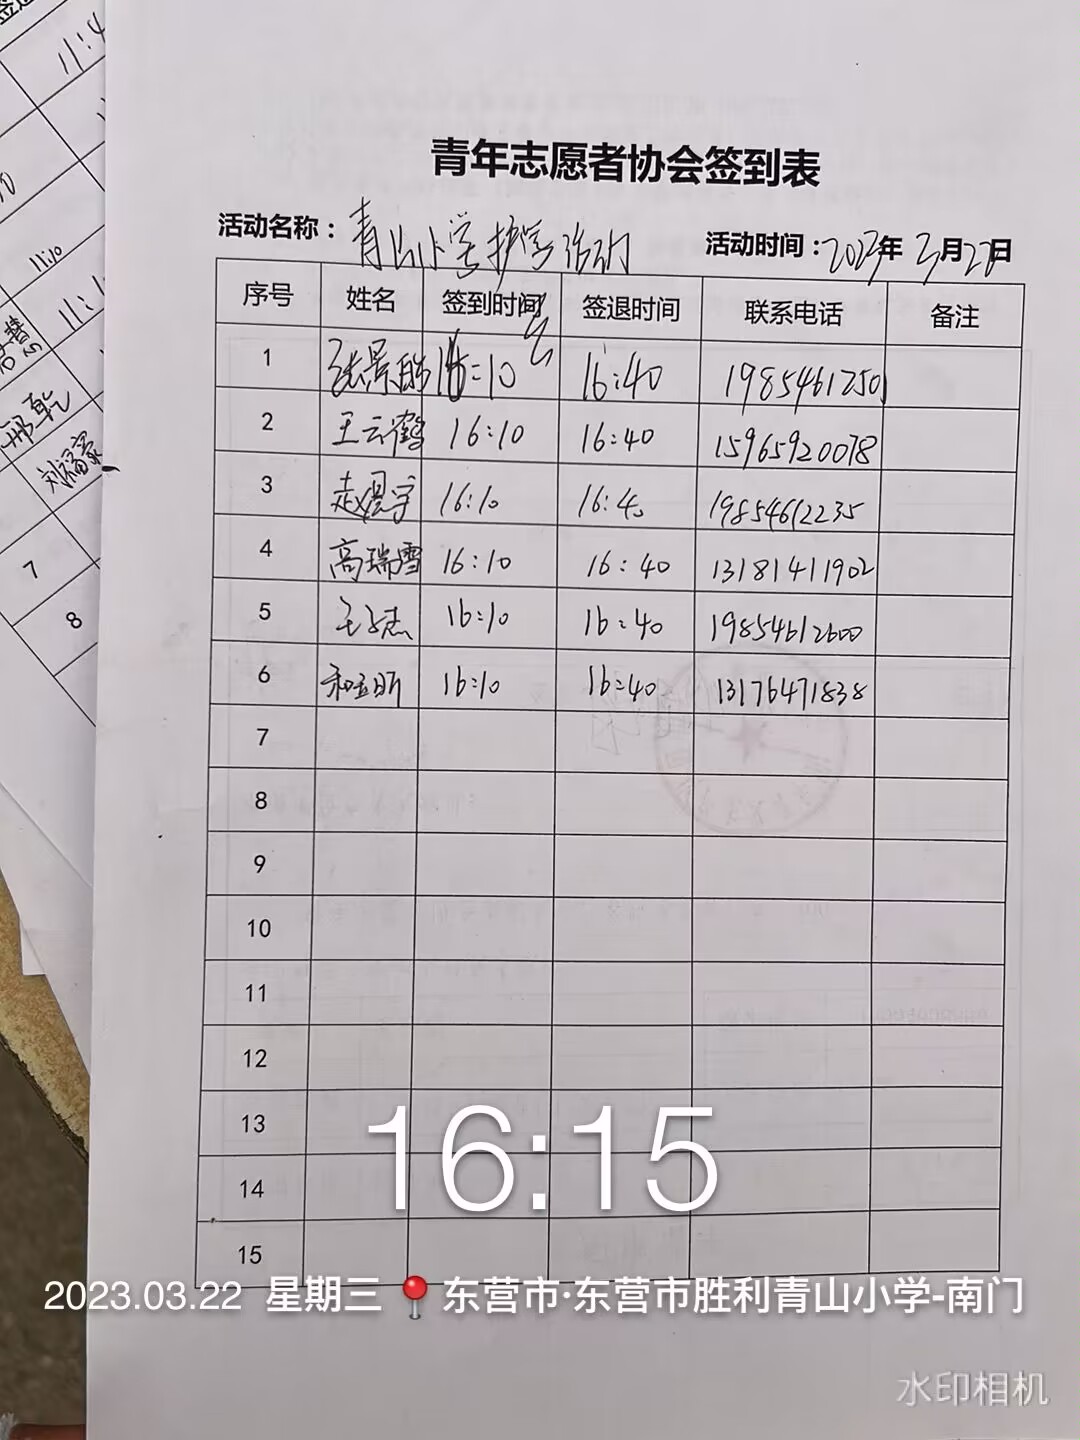 青年志愿者协会签到表
活动名称：青山小学护学活动 活动时间：2023年3月22日
序号 姓名 签到时间 签退时间 联系电话 备注
1 张景皓 16:10 16:40 19854612501
2 王云鹤 16:10 16:40 15965920078
3 赵煜宇 16:10 16:40 19854612235
4 高瑞雪 16:10 16:40 13181411902
5 16:10 16:40 19854612600
6 16:10 16:40 13176471838
7
8
9
10
11
12
13
14
15
11:10
邢乾
刘福豪
7
8
16:15
2023.03.22 星期三 东营市·东营市胜利青山小学-南门
水印相机